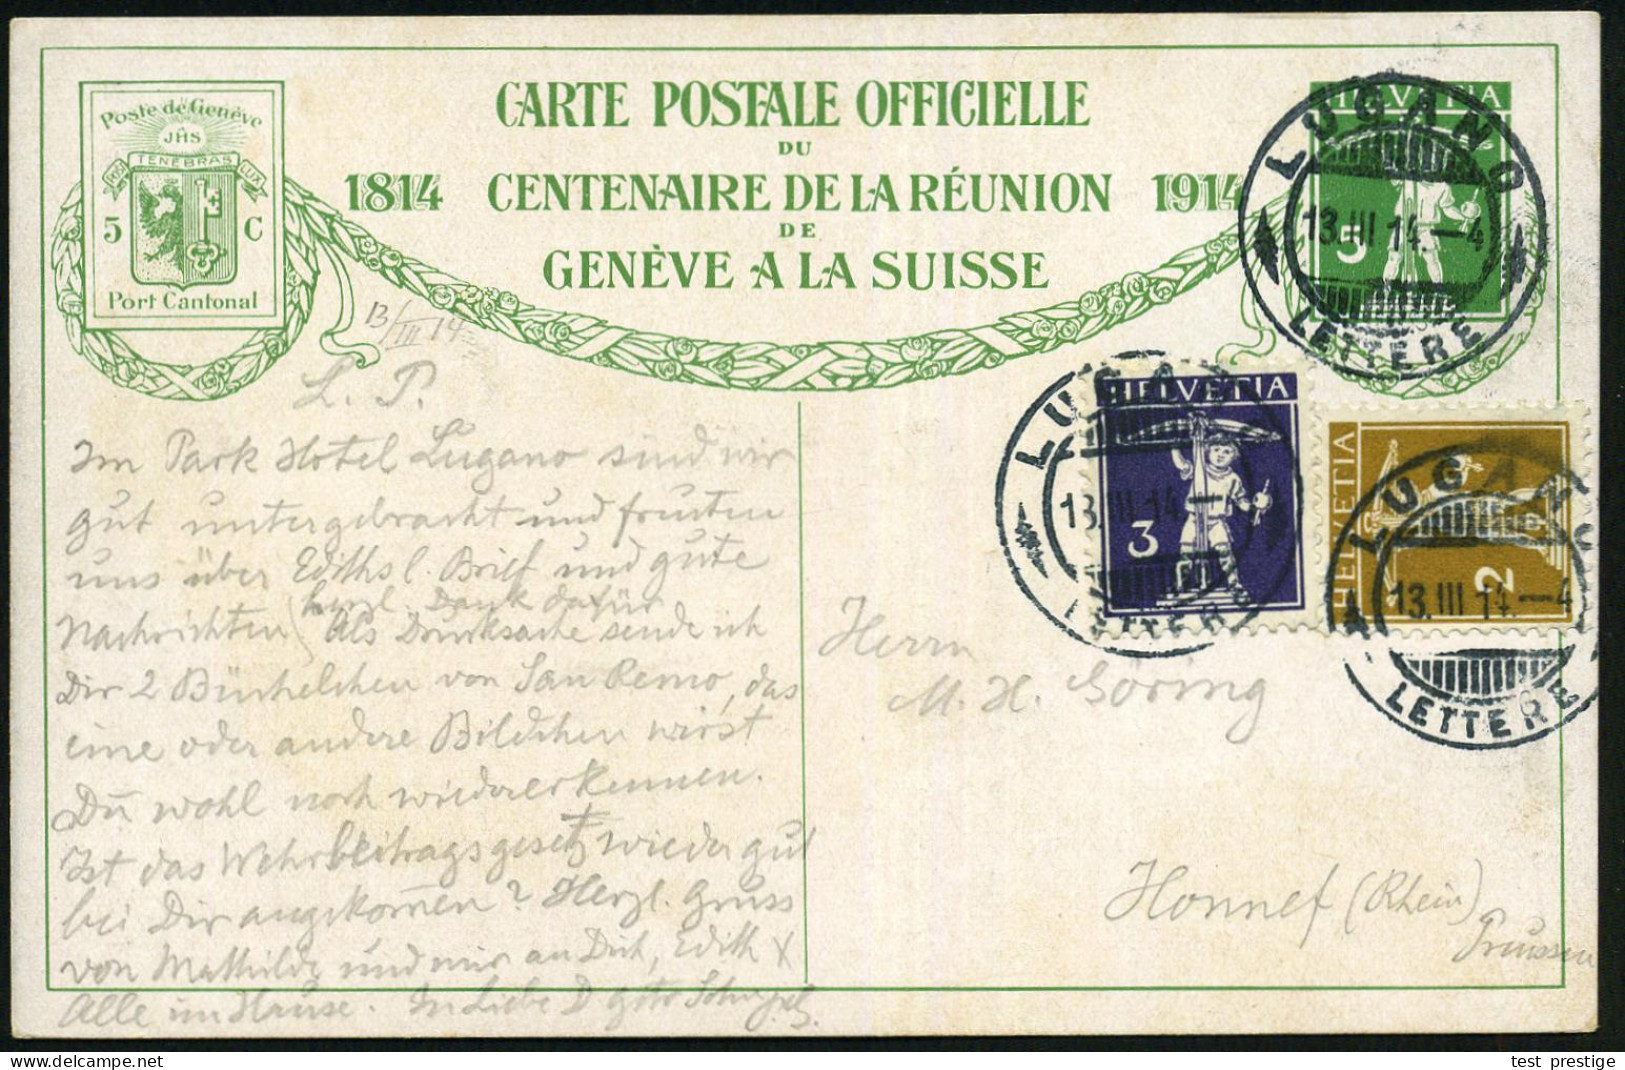 CARTE POSTALE OFFICIELLE
DU
1814 CENTENAIRE DE LA RÉUNION 1914
DE
GENÈVE A LA SUISSE
Poste de Genève
JHS
POST TENEBRAS LUX
5 C
Port Cantonal
HELVETIA
5
LUGANO
13.III 14.—4
LETTERE
HELVETIA
3
LUGANO
13.III 14.—
LETTERE
HELVETIA
2
LUGANO
13.III 14.—4
LETTERE
13/III 14
L. P.
Im Park Hotel Lugano sind wir
gut untergebracht und freuten
uns über Ediths l. Brief und gute
herzl. Dank dafür
Nachrichten Als Drucksache sende ich
Dir 2 Büchelchen von San Remo, das
eine oder andere Bildchen wirst
Du wohl noch wiedererkennen.
Ist das Wehrbeitragsgesetz wieder gut
bei Dir angekommen? Herzl. Gruss
von Mathilde und mir an Dich, Edith &
Alle im Hause. In Liebe D
Herrn
M. H. Göring
Honnef (Rhein)
Preussen
test prestige